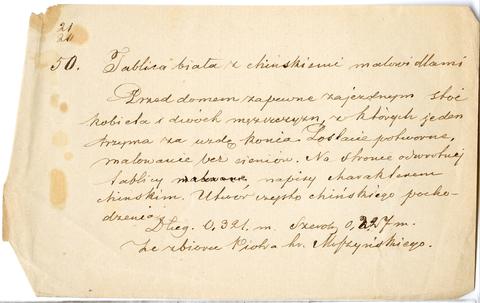 21
50. Tablica biała z chińskiemi malowidłami
Przed domem zapewne zajezdnym stoi
kobieta i dwóch mężczyzn, z których jeden
trzyma za uzdę konia. Postacie potworne,
malowanie bez cieniów. Na stronie odwrotnej
tablicy napisy charakterem
chinskim. Utwór czysto chińskiego pocho-
dzenia.
Dług. 0,321. m. Szerok. 0,257 m.
Ze zbioru Piotra hr. Moszyńskiego.